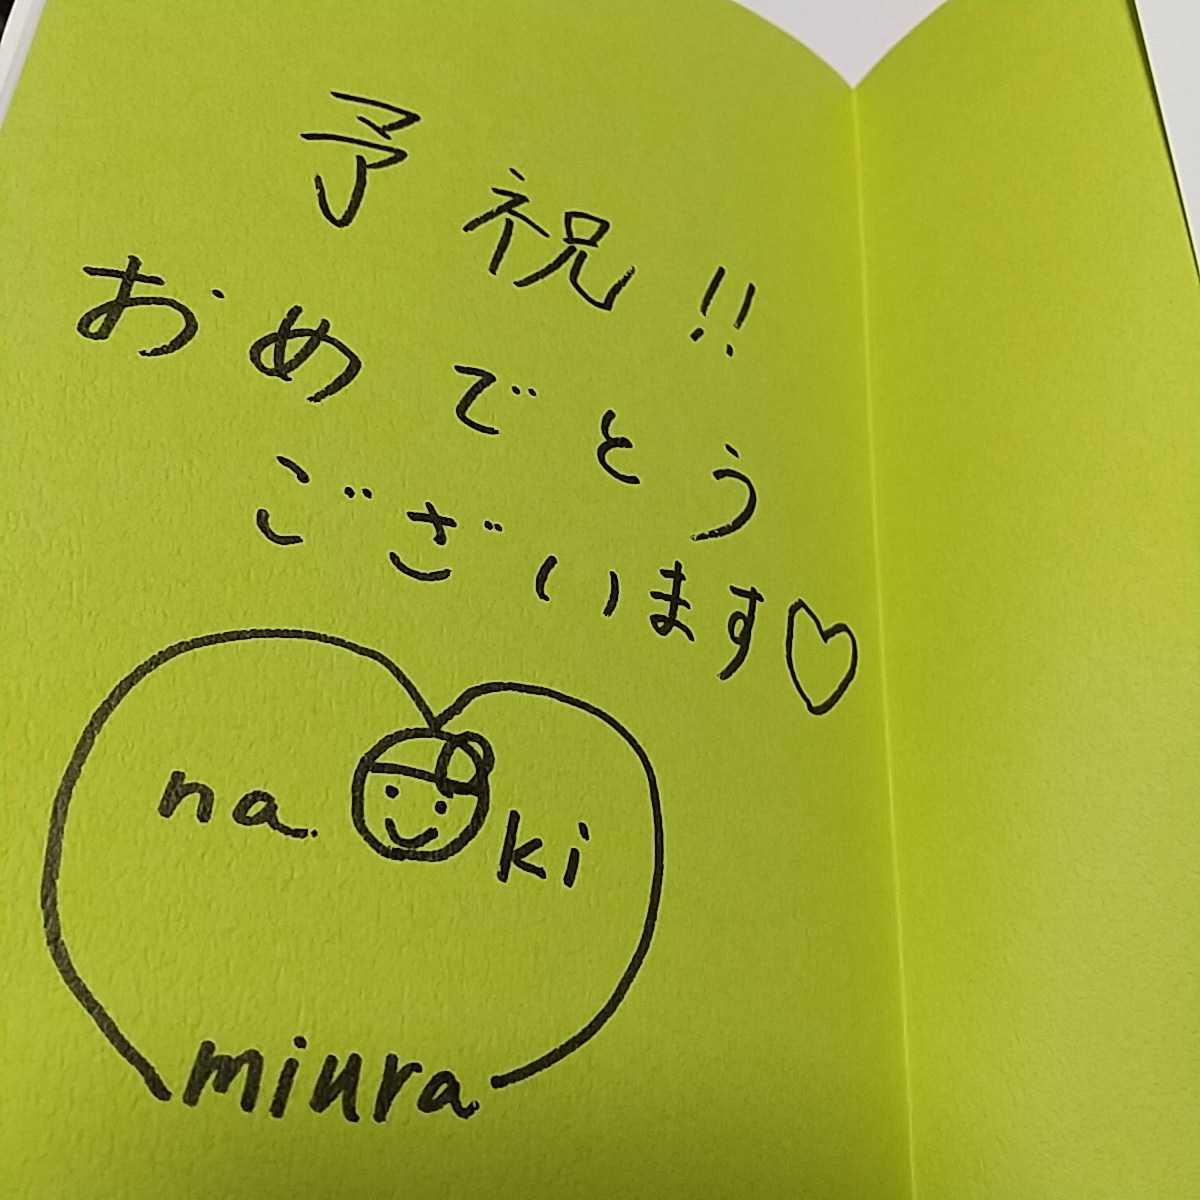 予祝!!
おめでとう
ございます♡
na ki
miura